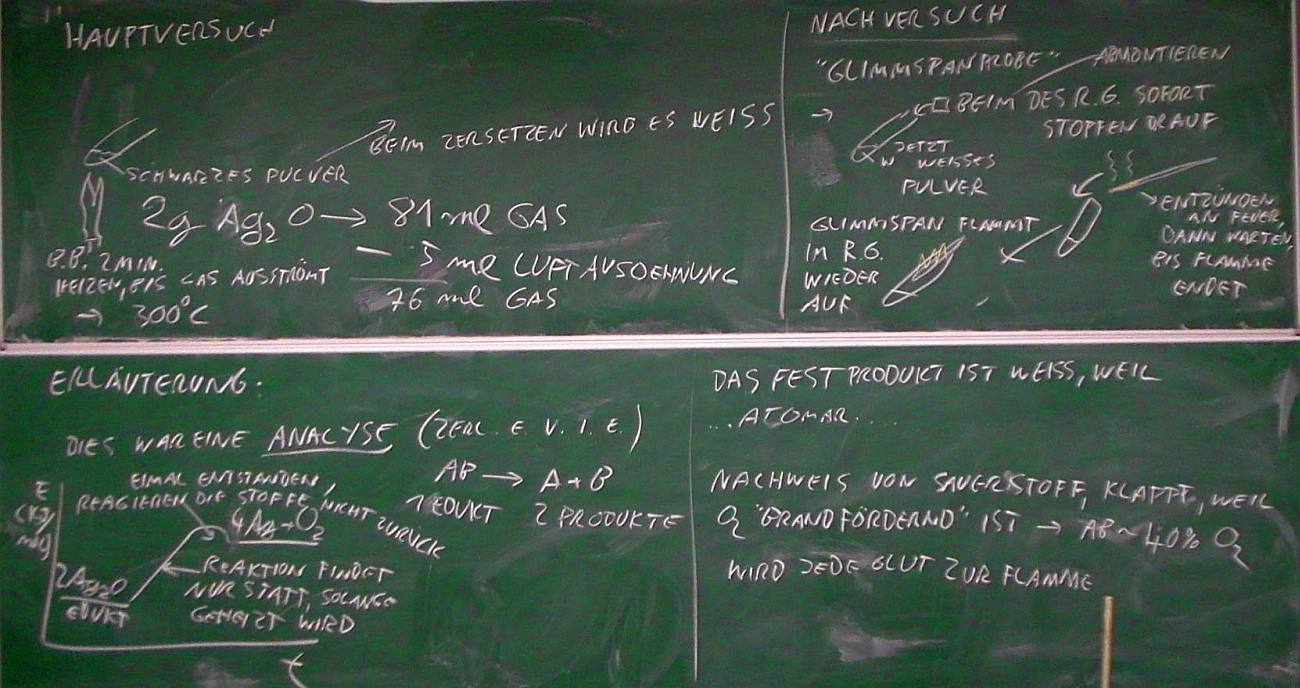 HAUPTVERSUCH
BEIM ZERSETZEN WIRD ES WEISS
SCHWARZES PULVER
2g Ag₂O → 81 ml GAS
- 5 ml LUFTAUSDEHNUNG
76 ml GAS
B.B. 2 MIN.
HEIZEN, BIS GAS AUSSTRÖMT
→ 300°C
NACHVERSUCH
"GLIMMSPANPROBE"
ABMONTIEREN
→ BEIM DES R.G. SOFORT
STOPFEN DRAUF
JETZT
WEISSES
PULVER
ENTZÜNDEN
AN FEUER,
DANN WARTEN,
BIS FLAMME
ENDET
GLIMMSPAN FLAMMT
IM R.G.
WIEDER
AUF
ERLÄUTERUNG:
DIES WAR EINE ANALYSE (ZERL. E. V. I. E.)
AB → A + B
1 EDUKT 2 PRODUKTE
EIMAL ENTSTANDEN,
REAGIEREN DIE STOFFE NICHT ZURÜCK
E
4Ag + O₂
2Ag₂O
EDUKT
REAKTION FINDET
NUR STATT, SOLANGE
GEHEIZT WIRD
t
DAS FESTPRODUKT IST WEISS, WEIL
...ATOMAR....
NACHWEIS VON SAUERSTOFF, KLAPPT, WEIL
O₂ "BRANDFÖRDERND" IST → AB ~ 40% O₂
WIRD JEDE GLUT ZUR FLAMME